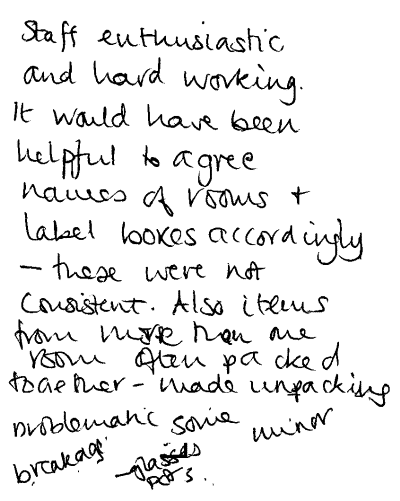 Staff enthusiastic
and hard working.
It would have been
helpful to agree
names of rooms +
label boxes accordingly
- these were not
consistent. Also items
from more than one
room often packed
together - made unpacking
problematic some minor
breakages
- glasses
pots.